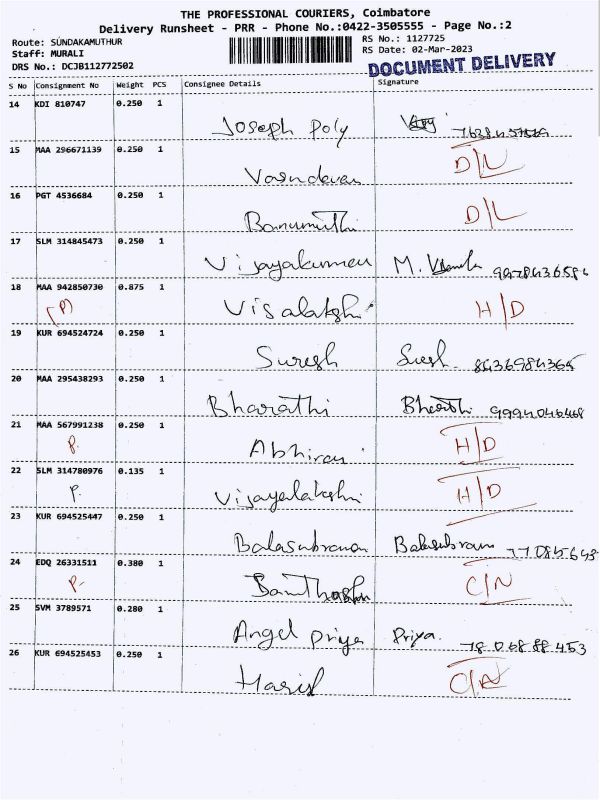 THE PROFESSIONAL COURIERS, Coimbatore
Delivery Runsheet - PRR - Phone No.:0422-3505555 - Page No.:2
Route: SUNDAKAMUTHUR RS No.: 1127725
Staff: MURALI RS Date: 02-Mar-2023
DRS No.: DCJB112772502 DOCUMENT DELIVERY
S No Consignment No Weight PCS Consignee Details Signature
14 KDI 810747 0.250 1
Joseph Poly
15 MAA 296671139 0.250 1 D/L
Vasudevan
16 PGT 4536684 0.250 1 D/L
Banumuthi
17 SLM 314845473 0.250 1
Vijayakumar M. 9978436586
18 MAA 942850730 0.875 1
(P) Visalakshi H/D
19 KUR 694524724 0.250 1
Suresh Suresh 8636984365
20 MAA 295438293 0.250 1
Bharathi Bharathi 9994046468
21 MAA 567991238 0.250 1
P. Abhiram H/D
22 SLM 314780976 0.135 1
P. Vijayalakshmi H/D
23 KUR 694525447 0.250 1
Balasubraman Balasubram
24 EDQ 26331511 0.380 1
P- C/N
25 SVM 3789571 0.280 1
Angel Priya Priya. 78 068 88 453
26 KUR 694525453 0.250 1
Harish C/N